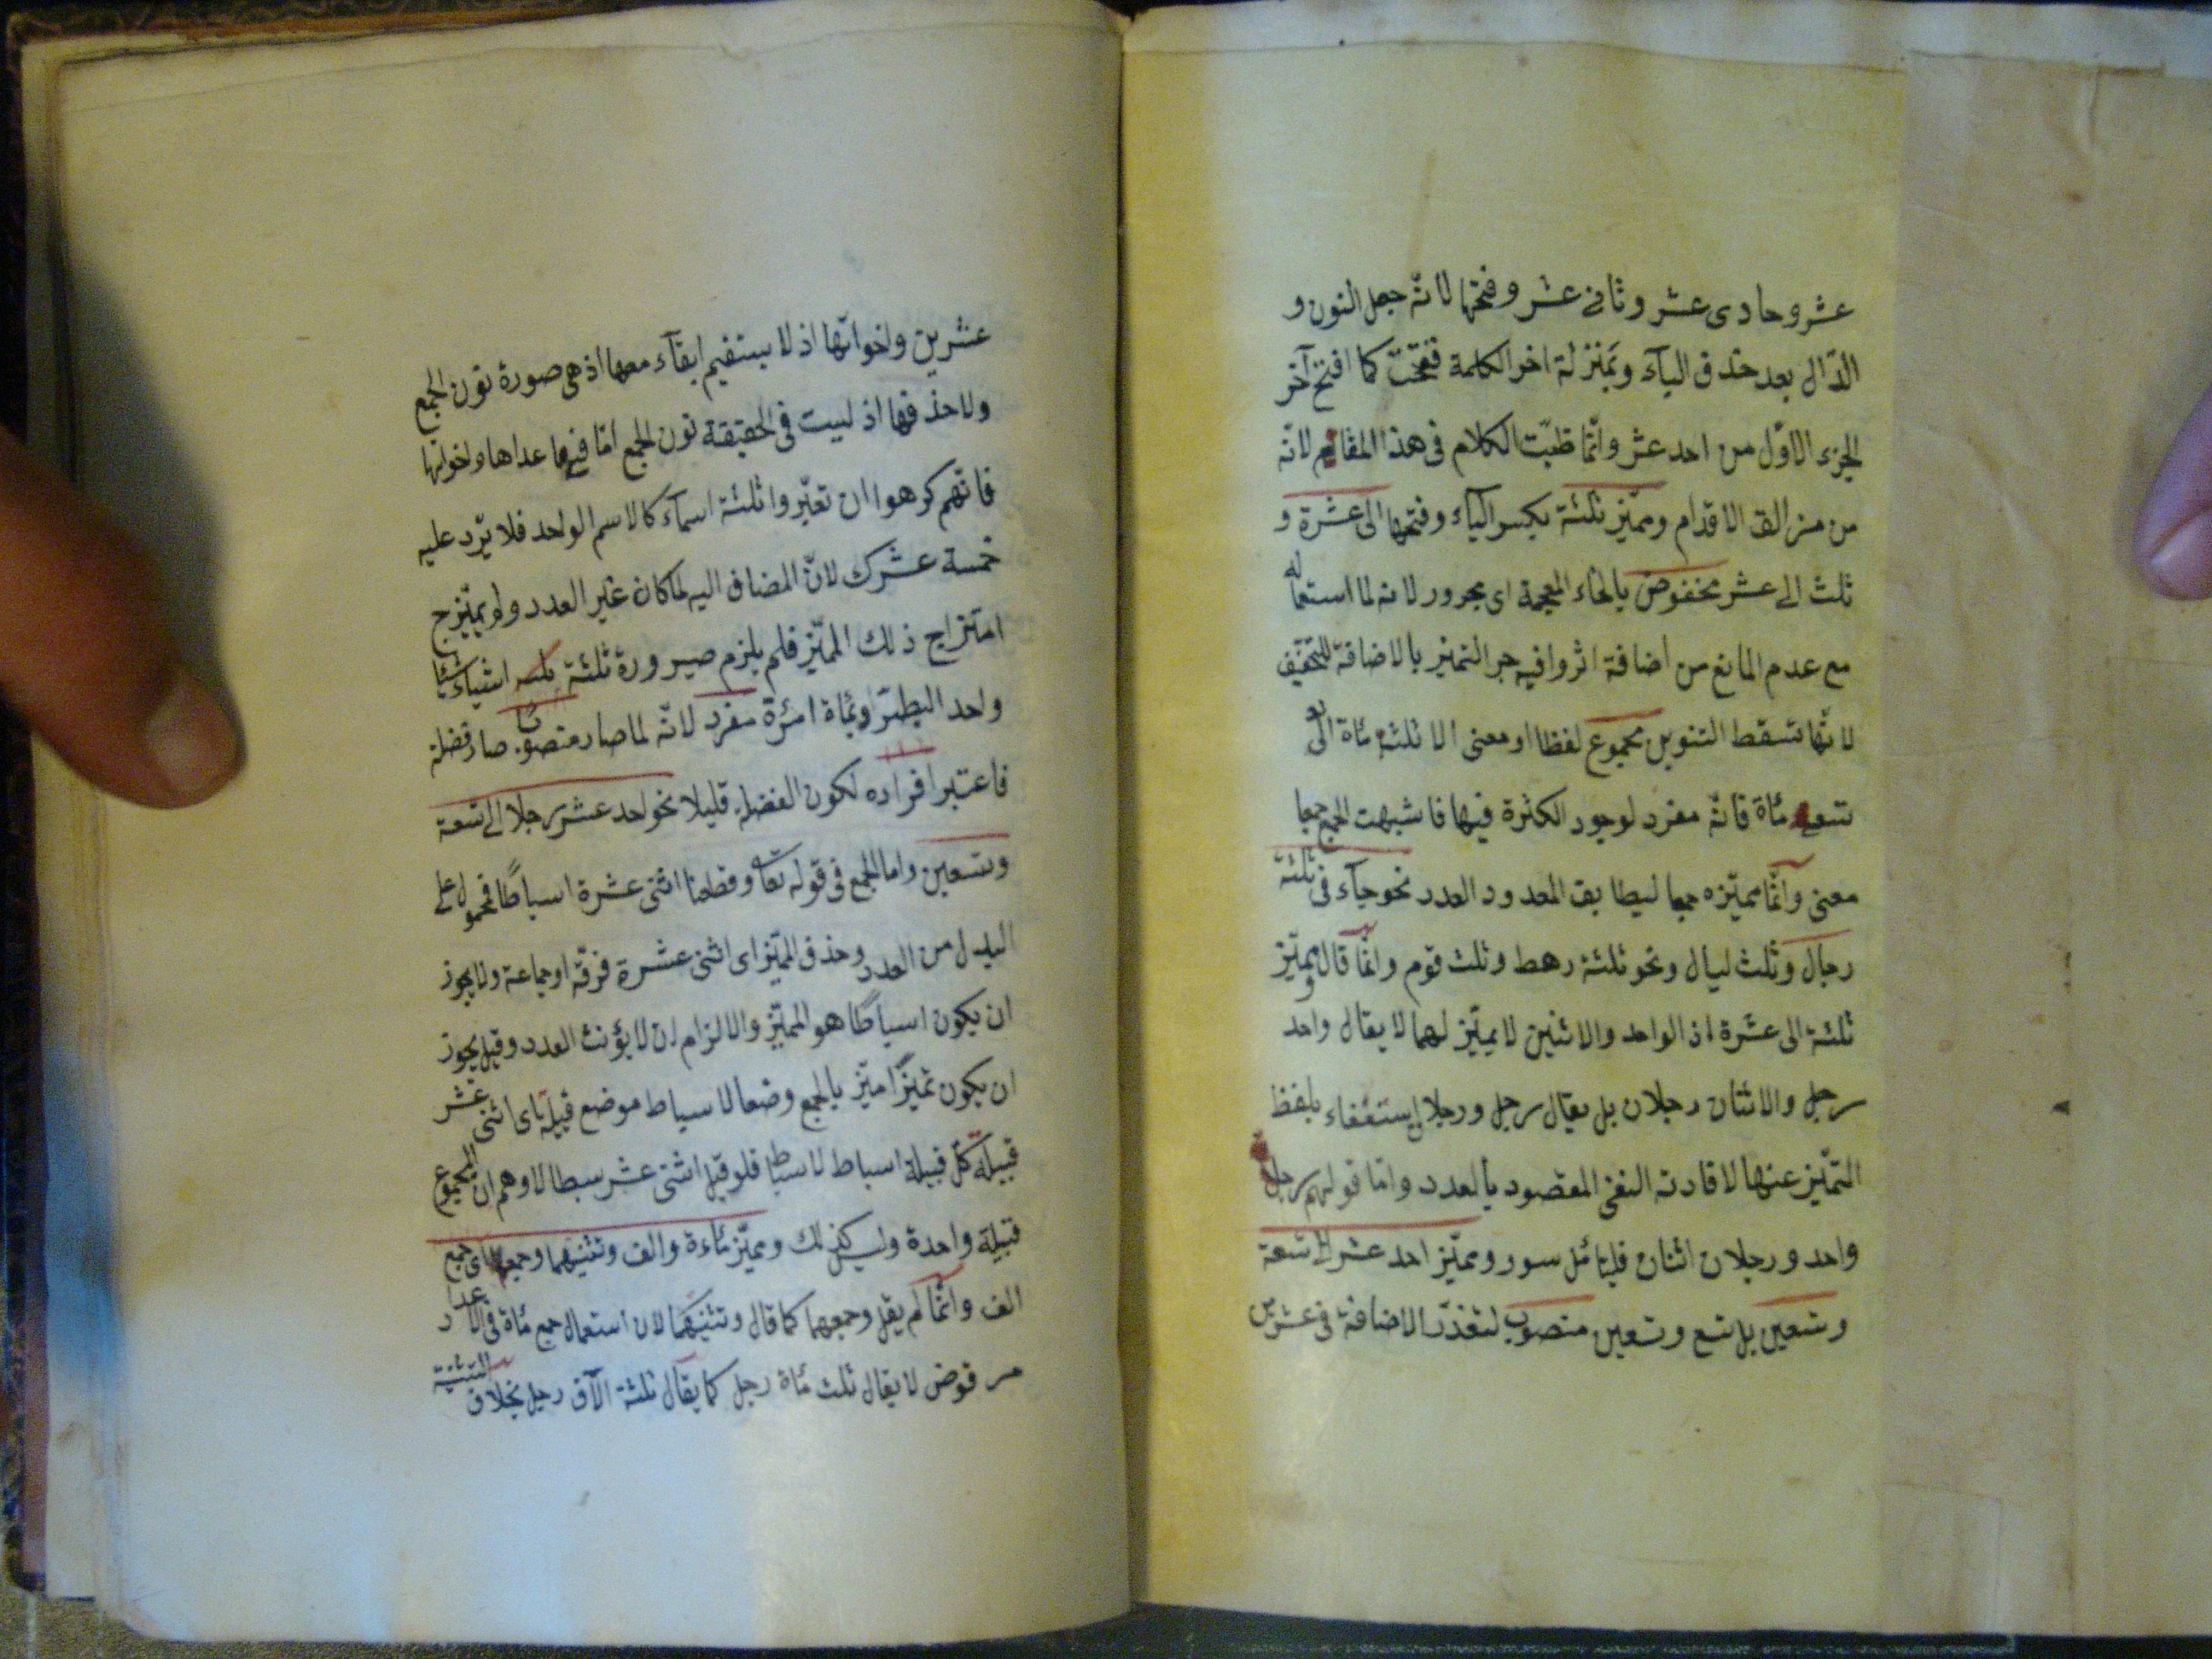 عشر وحادى عشر وثانى عشر وفتحها لانه جعل النون و
الدّال بعد حذف الياء وبمنزلة اخر الكلمة ففتحت كما افتح آخر
الجزء الاوّل من احد عشر وانّما الكلام فى هذا المقام لانّه
من مزالق الاقدام ومميّز ثلثة بكسر الياء وفتحها الى عشرة و
ثلث الى عشر مخفوض بالخاء المعجمة اى مجرور لانه لما استعماله
مع عدم المانع من اضافة اثروا فيه جر التميز بالاضافة للتخفيف
لانّها تسقط التنوين مجموع لفظا او معنى الا ثلثة مأة الى
تسع مأة فانّه مفرد لوجود الكثرة فيها فاشبهت الجمع جمعا
معنى وانّما مميّزه جمعا ليطابق المعدود العدد نحو جآء فى ثلثة
رجال وثلث ليال ونحو ثلثة رهط وثلث قوم وانّما قال ومميّز
ثلثة الى عشرة اذ الواحد والاثنين لا مميّز لهما لا يقال واحد
رجل والاثنان رجلان بل يقال رجل ورجلان استغناء بلفظ
التميّز عنها لافادته النص المقصود بالعدد وامّا قولهم رجل
واحد ورجلان اثنان فليتأمّل سور ومميّز احد عشر الى تسعة
وتسعين بل تسع وتسعين منصوب لتعذّر الاضافة فى عشرين
عشرين واخواتها اذ لا يستقيم ابقآء معها اذ هى صورة نون الجمع
ولا حذفها اذ ليست فى الحقيقة نون الجمع امّا فيما عداها واخواتها
فانّهم كرهوا ان تعيّروا ثلثة اسمآء كالاسم الواحد فلا يرد عليه
خمسة عشرك لانّ المضاف اليه لما كان غير العدد ولم يميّزج
امتزاج ذلك المميّز فلم يلزم صيرورة ثلثة اشياء شيئا
واحد البطترّ وثمأة امرُة مفرد لانّه لما صار منصوبًا صار فضلة
فاعتبر افراده لكون الفضلة قليلا نحو احد عشر رجلا الى تسعة
وتسعين واما الجمع فى قوله تعا وقطعنا اثنى عشرة اسباطًا فمحمول على
البدل من العدد وحذف المميّز اى اثنى عشرة فرقة او جماعة ولا يجوز
ان يكون اسباطًا هو المميّز والا لزام ان لا يؤنث العدد وقيل يجوز
ان يكون تميزًا ميّز بالجمع وضعا لاسباط موضع قبيلة اى اثنى عشر
قبيلة كلّ قبيلة اسباط لا سبط فلو قيل اثنى عشر سبطا لاوهم ان المجموع
قبيلة واحدة وليس كذلك ومميّز مأة والف وتثنيتهما وجمعه اى جمع
الف وانّما لم يقل وجمعهما كما قال وتثنيتهما لان استعمال جمع مأة فى الاعداد
مرفوض لا يقال ثلث مأة رجل كما يقال ثلثة آلآف رجل بخلاف التثنية